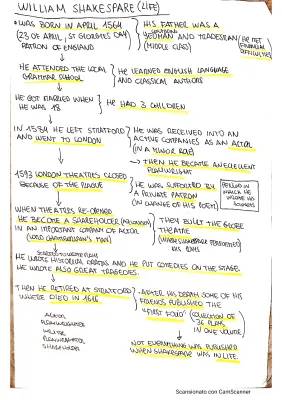 WILLIAM SHAKESPEARE (LIFE)
• WAS BORN IN APRIL 1564
(23 OF APRIL, ST GIORGIES DAY)
PATRON OF ENGLAND
HIS FATHER WAS A
YEOMAN AND TRADESMAN
(MIDDLE CLASS)
(HE MET
FINANCIAL
DIFFICULTIES)
HE ATTENDED THE LOCAL
GRAMMAR SCHOOL
HE LEARNED ENGLISH LANGUAGE
AND CLASSICAL AUTHORS
HE GOT MARRIED WHEN
HE WAS 18
HE HAD 3 CHILDREN
IN 1584 HE LEFT STRATFORD
AND WENT TO LONDON
HE WAS RECEIVED INTO AN
ACTIVE COMPANIES AS AN ACTOR
(IN A MINOR ROLE)
THEN HE BECAME AN EXCELLENT
PLAYWRIGHT
1593 LONDON THEATRES CLOSED
BECAUSE OF THE PLAGUE
HE WAS SUPPORTED BY
A PRIVATE PATRON
(IN CHARGE OF HIS POETRY)
PERIOD IN
WHICH HE
WROTE HIS
SONNETS
WHEN THEATRES RE-OPENED
HE BECOME A SHAREHOLDER
IN AN IMPORTANT COMPANY OF ACTOR
(LORD CHAMBERLAIN'S MEN)
THEY BUILT THE GLOBE
THEATRE
(WHERE SHAKESPEARE PERFORMED
HIS PLAYS
STARTED TO WRITE PLAYS
HE WROTE HISTORICAL DRAMAS AND HE PUT COMEDIES ON THE STAGE.
HE WROTE ALSO GREAT TRAGEDIES.
THEN HE RETIRED AT STRATFORD
WHERE DIED IN 1616
AFTER HIS DEATH SOME OF HIS
FRIENDS PUBLISHED THE
"FIRST FOLIO"
(COLLECTION OF
36 PLAYS
IN ONE VOLUME)
ACTOR
WRITER
SHAREHOLDER
NOT EVERYTHING WAS PUBLISHED
WHEN SHAKESPEARE WAS IN LIFE.
Scansionato con CamScanner